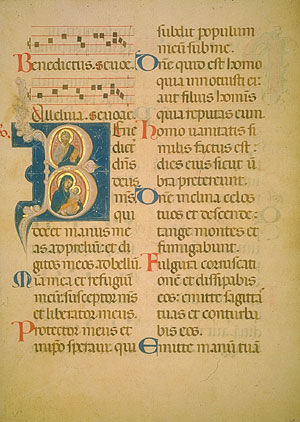 Benedictus. Seuoe.
Alleluia. Seuoae.
Bene
dict
dn̄s
deus
ms
qui
docet manus me
as ad prelium: et di
gitos meos ad bellum.
Mīa mea et refugiū
meum: susceptor ms̄
et liberator meus.
Protector meus et
in ip̄o speraui: qui
subdit populum
meū sub me.
Dn̄e quid est homo
quia innotuisti ei:
aut filius hominis
quia reputas eum.
Homo uanitati si
milis factus est:
dies eius sicut ū
bra pretereunt.
Dn̄e inclina celos
tuos et descende:
tange montes et
fumigabunt.
Fulgura coruscati
onē et dissipabis
eos: emitte sagittas
tuas et conturba
bis eos.
Emitte manū tuā